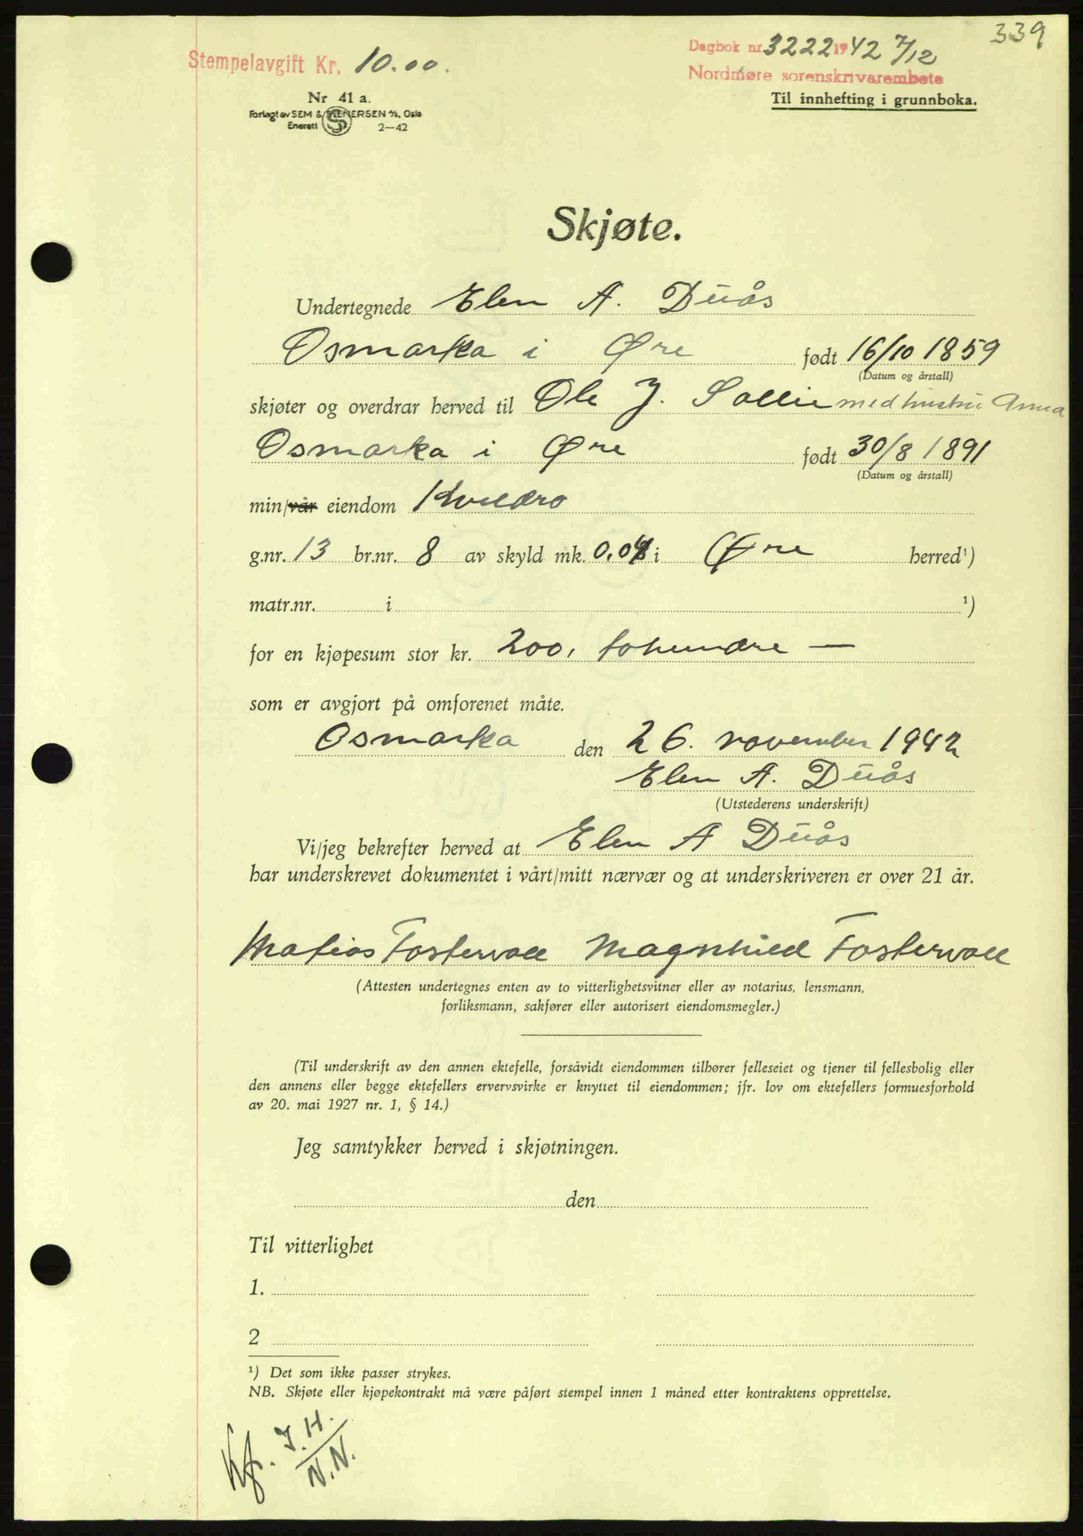 339
Stempelavgift Kr. 10.00.
Dagbok nr. 3222 1942 7/12
Nordmøre sorenskrivarembete
Til innhefting i grunnboka.
Nr 41 a.
Forlagt av SEM & STENERSEN A/S, Oslo
Enerett 2—42
Skjøte.
Undertegnede Elen A. Duås
Osmarka i Øre født 16/10 1859
(Datum og årstall)
skjøter og overdrar herved til Ole J. Sollie med hustru Anna
Osmarka i Øre født 30/8 1891
(Datum og årstall)
min/vår eiendom
g.nr. 13 br.nr. 8 av skyld mk. 0.04 i Øre herred¹)
matr.nr. i ¹)
for en kjøpesum stor kr. 200, tohundre —
som er avgjort på omforenet måte.
Osmarka den 26. november 1942
Elen A. Duås
(Utstederens underskrift)
Vi/jeg bekrefter herved at Elen A Duås
har underskrevet dokumentet i vårt/mitt nærvær og at underskriveren er over 21 år.
Matias Fostervoll Magnhild Fostervoll
(Attesten undertegnes enten av to vitterlighetsvitner eller av notarius, lensmann,
forliksmann, sakfører eller autorisert eiendomsmegler.)
(Til underskrift av den annen ektefelle, forsåvidt eiendommen tilhører felleseiet og tjener til fellesbolig eller
den annens eller begge ektefellers ervervsvirke er knyttet til eiendommen; jfr. lov om ektefellers formuesforhold
av 20. mai 1927 nr. 1, § 14.)
Jeg samtykker herved i skjøtningen.
den
Til vitterlighet
1.
2
¹) Det som ikke passer strykes.
NB. Skjøte eller kjøpekontrakt må være påført stempel innen 1 måned etter kontraktens opprettelse.
Kf. J.H.
N.N.